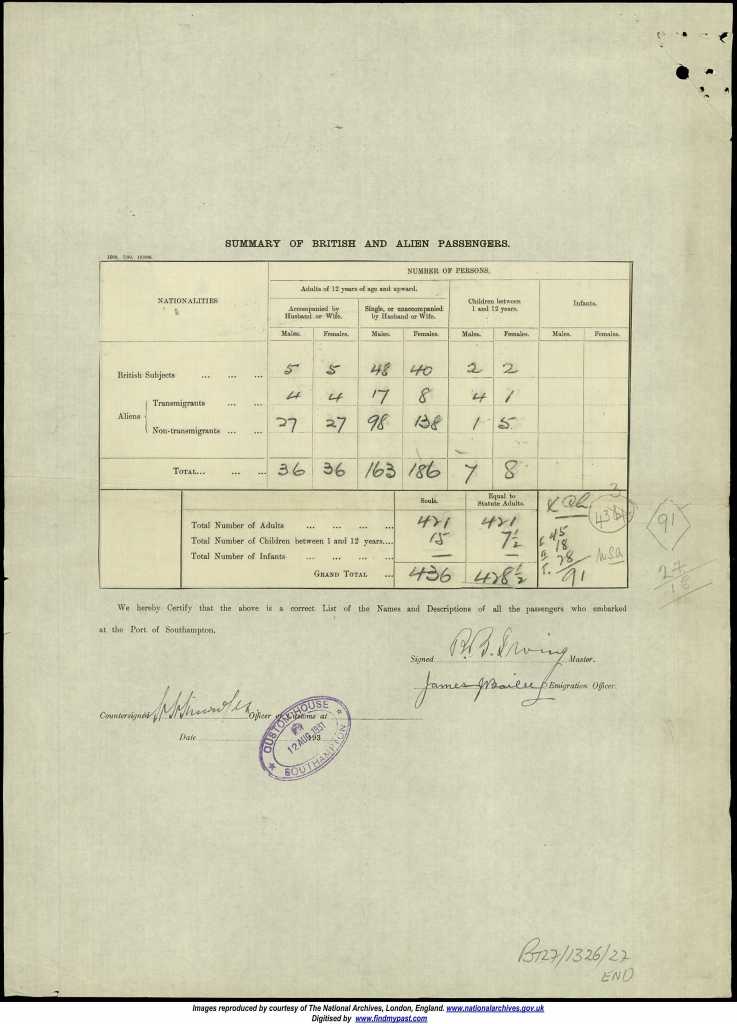 SUMMARY OF BRITISH AND ALIEN PASSENGERS.
NUMBER OF PERSONS.
NATIONALITIES
Adults of 12 years of age and upward.
Children between 1 and 12 years.
Infants.
Accompanied by Husband or Wife.
Single, or unaccompanied by Husband or Wife.
Males. Females. Males. Females. Males. Females. Males. Females.
British Subjects ... ... ... 5 5 48 40 2 2
Aliens
Transmigrants ... ... 4 4 17 8 4 1
Non-transmigrants ... ... 27 27 98 138 1 5
TOTAL... ... ... 36 36 163 186 7 8
Souls. Equal to Statute Adults.
Total Number of Adults ... ... ... ... 421 421
Total Number of Children between 1 and 12 years.... 15 7½
Total Number of Infants ... ... ... ... — —
GRAND TOTAL ... 436 428½
45
18
28
T. 91
USA
91
27
18
We hereby Certify that the above is a correct List of the Names and Descriptions of all the passengers who embarked
at the Port of Southampton.
Signed R. B. Irving Master.
James Bailey Emigration Officer.
Countersigned Officer of Customs at
Date 193
CUSTOM HOUSE
12 AUG 1937
SOUTHAMPTON
BT27/1326/22
END
Images reproduced by courtesy of The National Archives, London, England. www.nationalarchives.gov.uk
Digitised by www.findmypast.com